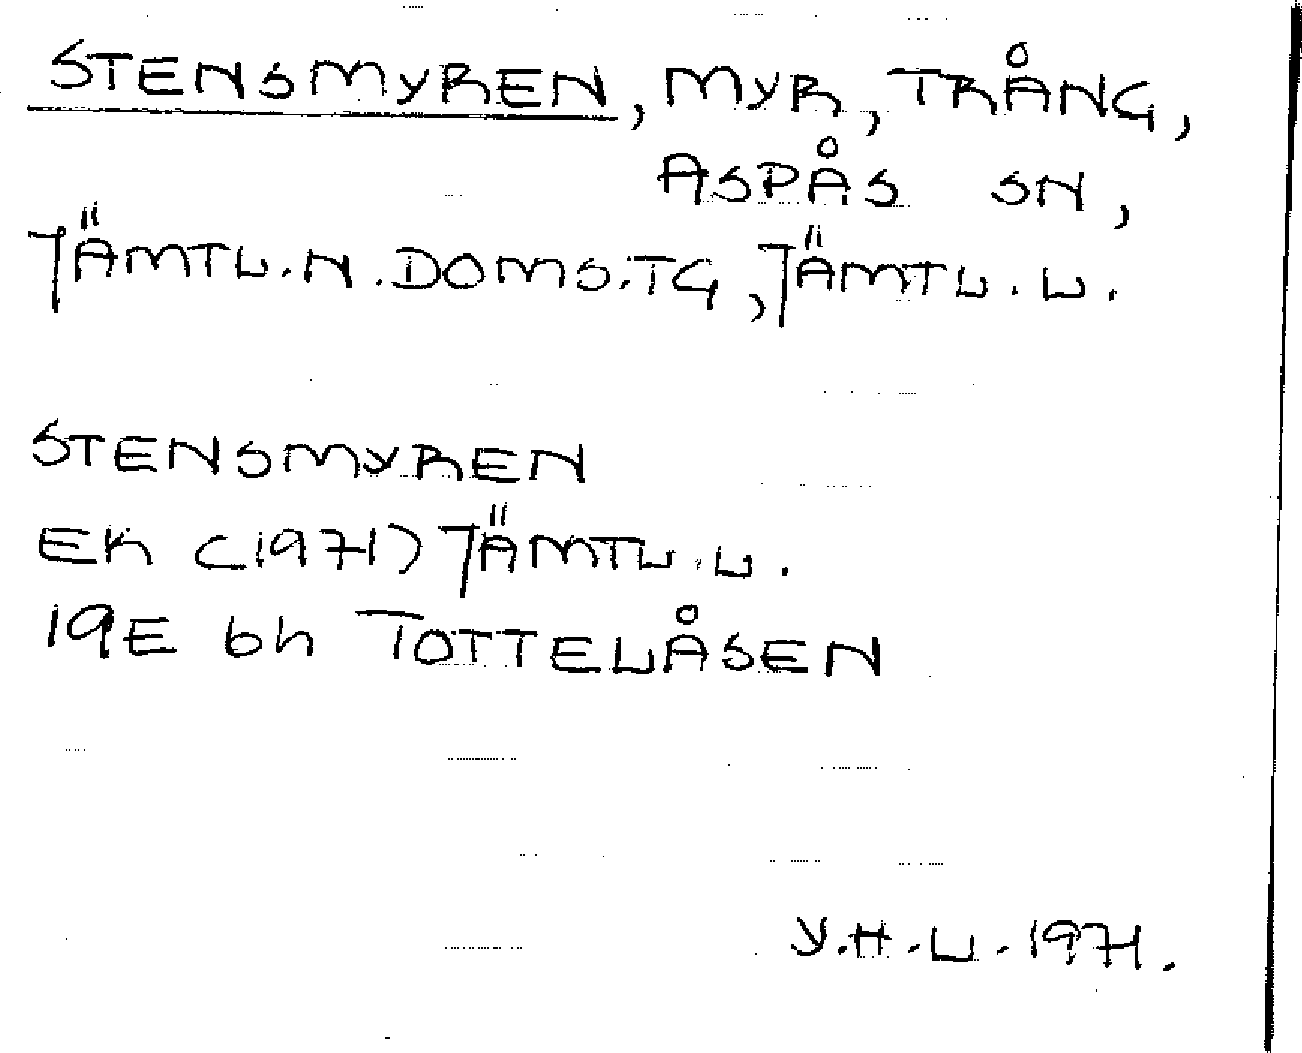 STENSMYREN, MYR, TRÅNG,
ASPÅS SN,
JÄMTL. N. DOMS.TG, JÄMTL. L.
STENSMYREN
EK (1971) JÄMTL. L.
19E 6h TOTTELÅSEN
Y.H.L. 1971.